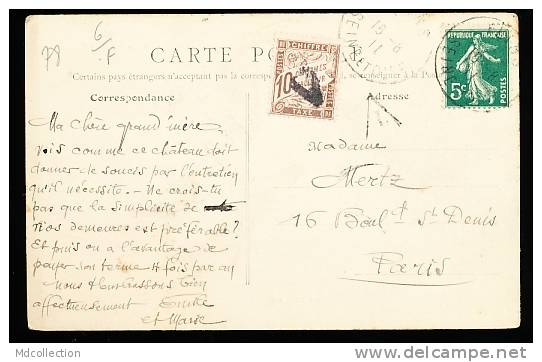 78
6/F
CARTE PO
Certains pays étrangers n'acceptant pas la corresp se renseigner à la Pos
Correspondance
Adresse
CHIFFRE
10
TAXE
REPUBLIQUE FRANÇAISE
5c
POSTES
15 -6
11
SEINE ET OISE
PARIS
T
Ma chère grand'mère,
vois comme ce château doit
donner le soucis par l'entretien
qu'il nécessite. Ne crois-tu
pas que la simplicité de
nos demeures est préférable?
Et puis on a l'avantage de
payer son terme 4 fois par an
Nous t'embrassons bien
affectueusement
et Marie
Madame
Mertz
16 Boul.t St Denis
Paris
MDcollection
http://www.delcampe.net